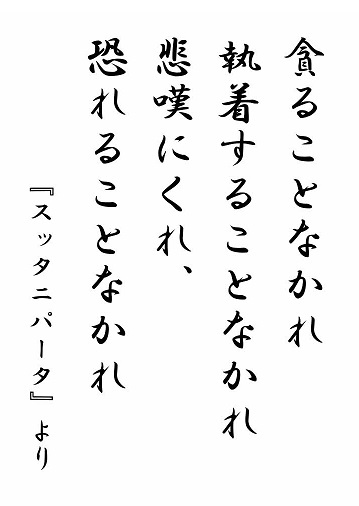 貪ることなかれ
執着することなかれ
悲嘆にくれ、
恐れることなかれ
『スッタニパータ』より